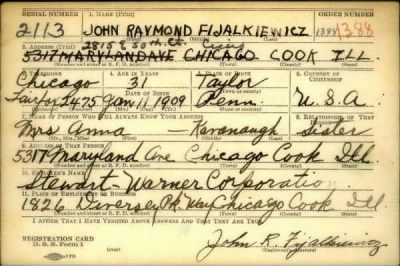 SERIAL NUMBER 1. NAME (Print) ORDER NUMBER
2113 JOHN RAYMOND FIJALKIEWICZ 1388
(First) (Middle) (Last)
2815 E 80th Ct.
2. ADDRESS (Print)
5317 MARYLAND AVE CHICAGO COOK ILL.
3. TELEPHONE 4. AGE IN YEARS 5. PLACE OF BIRTH 6. COUNTRY OF CITIZENSHIP
Chicago 31 Taylor
DATE OF BIRTH
Fairfax 2475 Jan. 11 1909 Penn. U.S.A.
7. NAME OF PERSON WHO WILL ALWAYS KNOW YOUR ADDRESS 8. RELATIONSHIP OF THAT PERSON
Mrs Anna — Kavanaugh Sister
9. ADDRESS OF THAT PERSON
5317 Maryland Ave Chicago Cook Ill.
10. EMPLOYER'S NAME
Stewart Warner Corporation
11. PLACE OF EMPLOYMENT OR BUSINESS
1826 Diversey Pk Way Chicago Cook Ill.
I AFFIRM THAT I HAVE VERIFIED ABOVE ANSWERS AND THAT THEY ARE TRUE.
REGISTRATION CARD
D. S. S. Form 1
John R. Fijalkiewicz